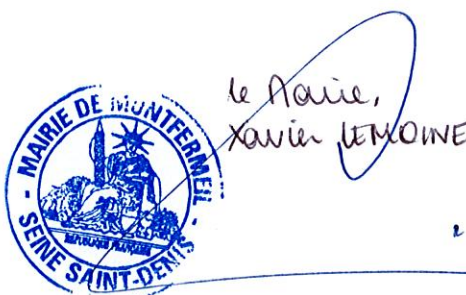 Le Maire,
Xavier LEMOINE
- MAIRIE DE MONTFERMEIL -
SEINE SAINT-DENIS
RÉPUBLIQUE FRANÇAISE